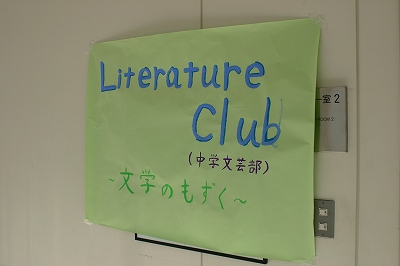 Literature
Club
(中学文芸部)
~文学のもずく~
室2
ROOM 2